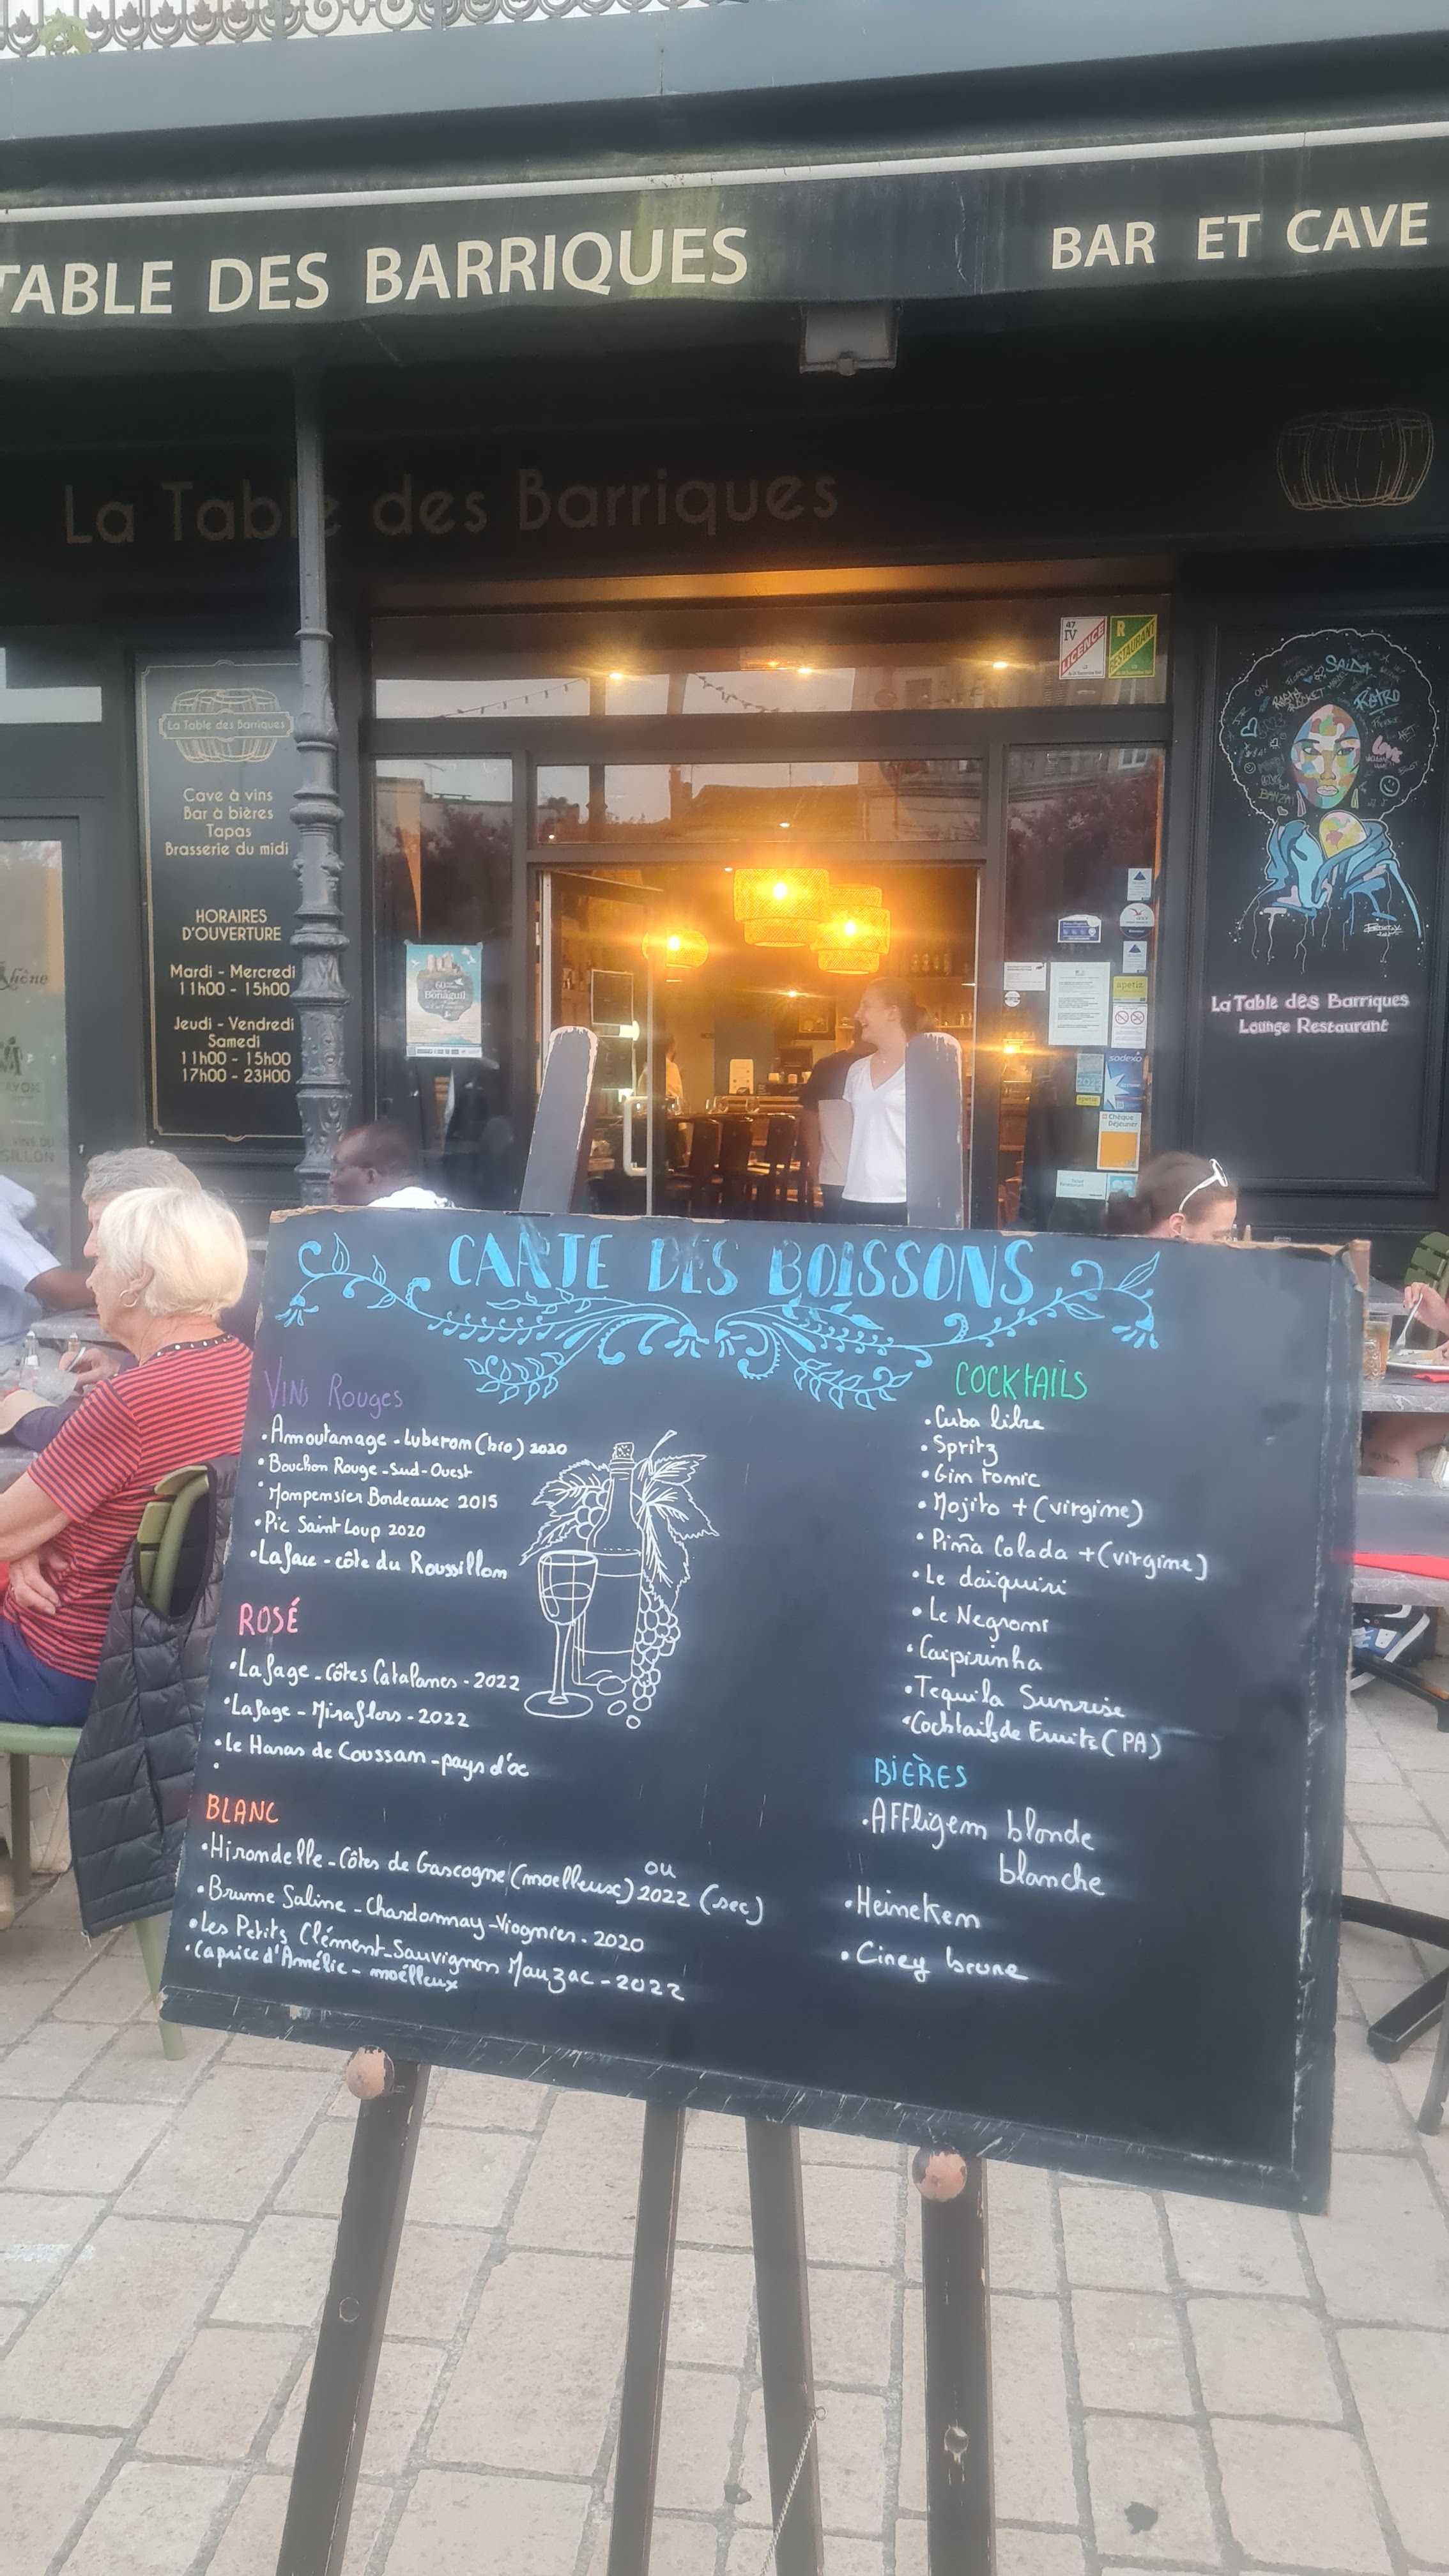 TABLE DES BARRIQUES
BAR ET CAVE
La Table des Barriques
47
IV
LICENCE
R
RESTAURANT
La Table des Barriques
Cave à vins
Bar à bières
Tapas
Brasserie du midi
HORAIRES
D'OUVERTURE
Mardi - Mercredi
11h00 - 15h00
Jeudi - Vendredi
Samedi
11h00 - 15h00
17h00 - 23H00
Bonaguil
SAiDA
RETRO
LOVE
La Table des Barriques
Lounge Restaurant
apetiz
sodexo
Chèque
Déjeuner
CARTE DES BOISSONS
VINS Rouges
• Amoutamage - Luberon (bio) 2020
• Bouchon Rouge - Sud-Ouest
• Monpensier Bordeaux 2015
• Pic Saint Loup 2020
• Lafage - côte du Roussillon
ROSÉ
• Lafage - Côtes Catalanes - 2022
• Lafage - Miraflors - 2022
• Le Haras de Coussan - pays d'oc
•
BLANC
• Hirondelle - Côtes de Gascogne (moelleux) ou 2022 (sec)
• Brume Saline - Chardonnay - Viognier - 2020
• Les Petits Clément - Sauvignon Mauzac - 2022
• Caprice d'Amélie - moëlleux
COCKTAILS
• Cuba libre
• Spritz
• Gin tonic
• Mojito + (virgine)
• Piña Colada + (virgine)
• Le daïquiri
• Le Negroni
• Caipirinha
• Tequila Sunrise
• Cocktails de Fruits (PA)
BIÈRES
• AFFligem blonde
blanche
• Heineken
• Ciney brune